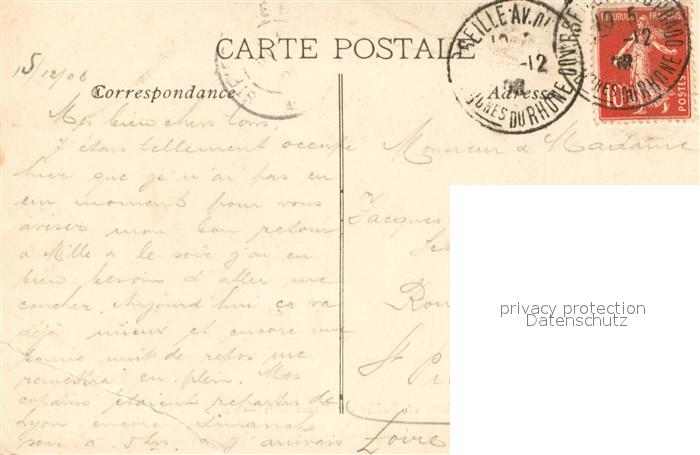 CARTE POSTALE
Correspondance
Adresse
REPUBLIQUE FRANÇAISE
10
POSTES
MARSEILLE AV. DU
-12
BOUCHES DU RHONE
-12
BOUCHES DU RHONE
15/12/08
Mes bien chers tous,
J'étais tellement occupé
hier que je n'ai pas eu
un moment pour vous
aviser mon bon retour
à Mlle à le soir j'ai eu
bien besoin d'aller me
coucher. Aujourd'hui ça va
déjà mieux et encore une
bonne nuit de repos me
remettra en plein. Mes
copains étaient repartis de
Lyon encore dimanche
pour à 5 hrs. a j'arrivais
Monsieur & Madame
Jacques
Rou
St Pri
Loire
privacy protection
Datenschutz